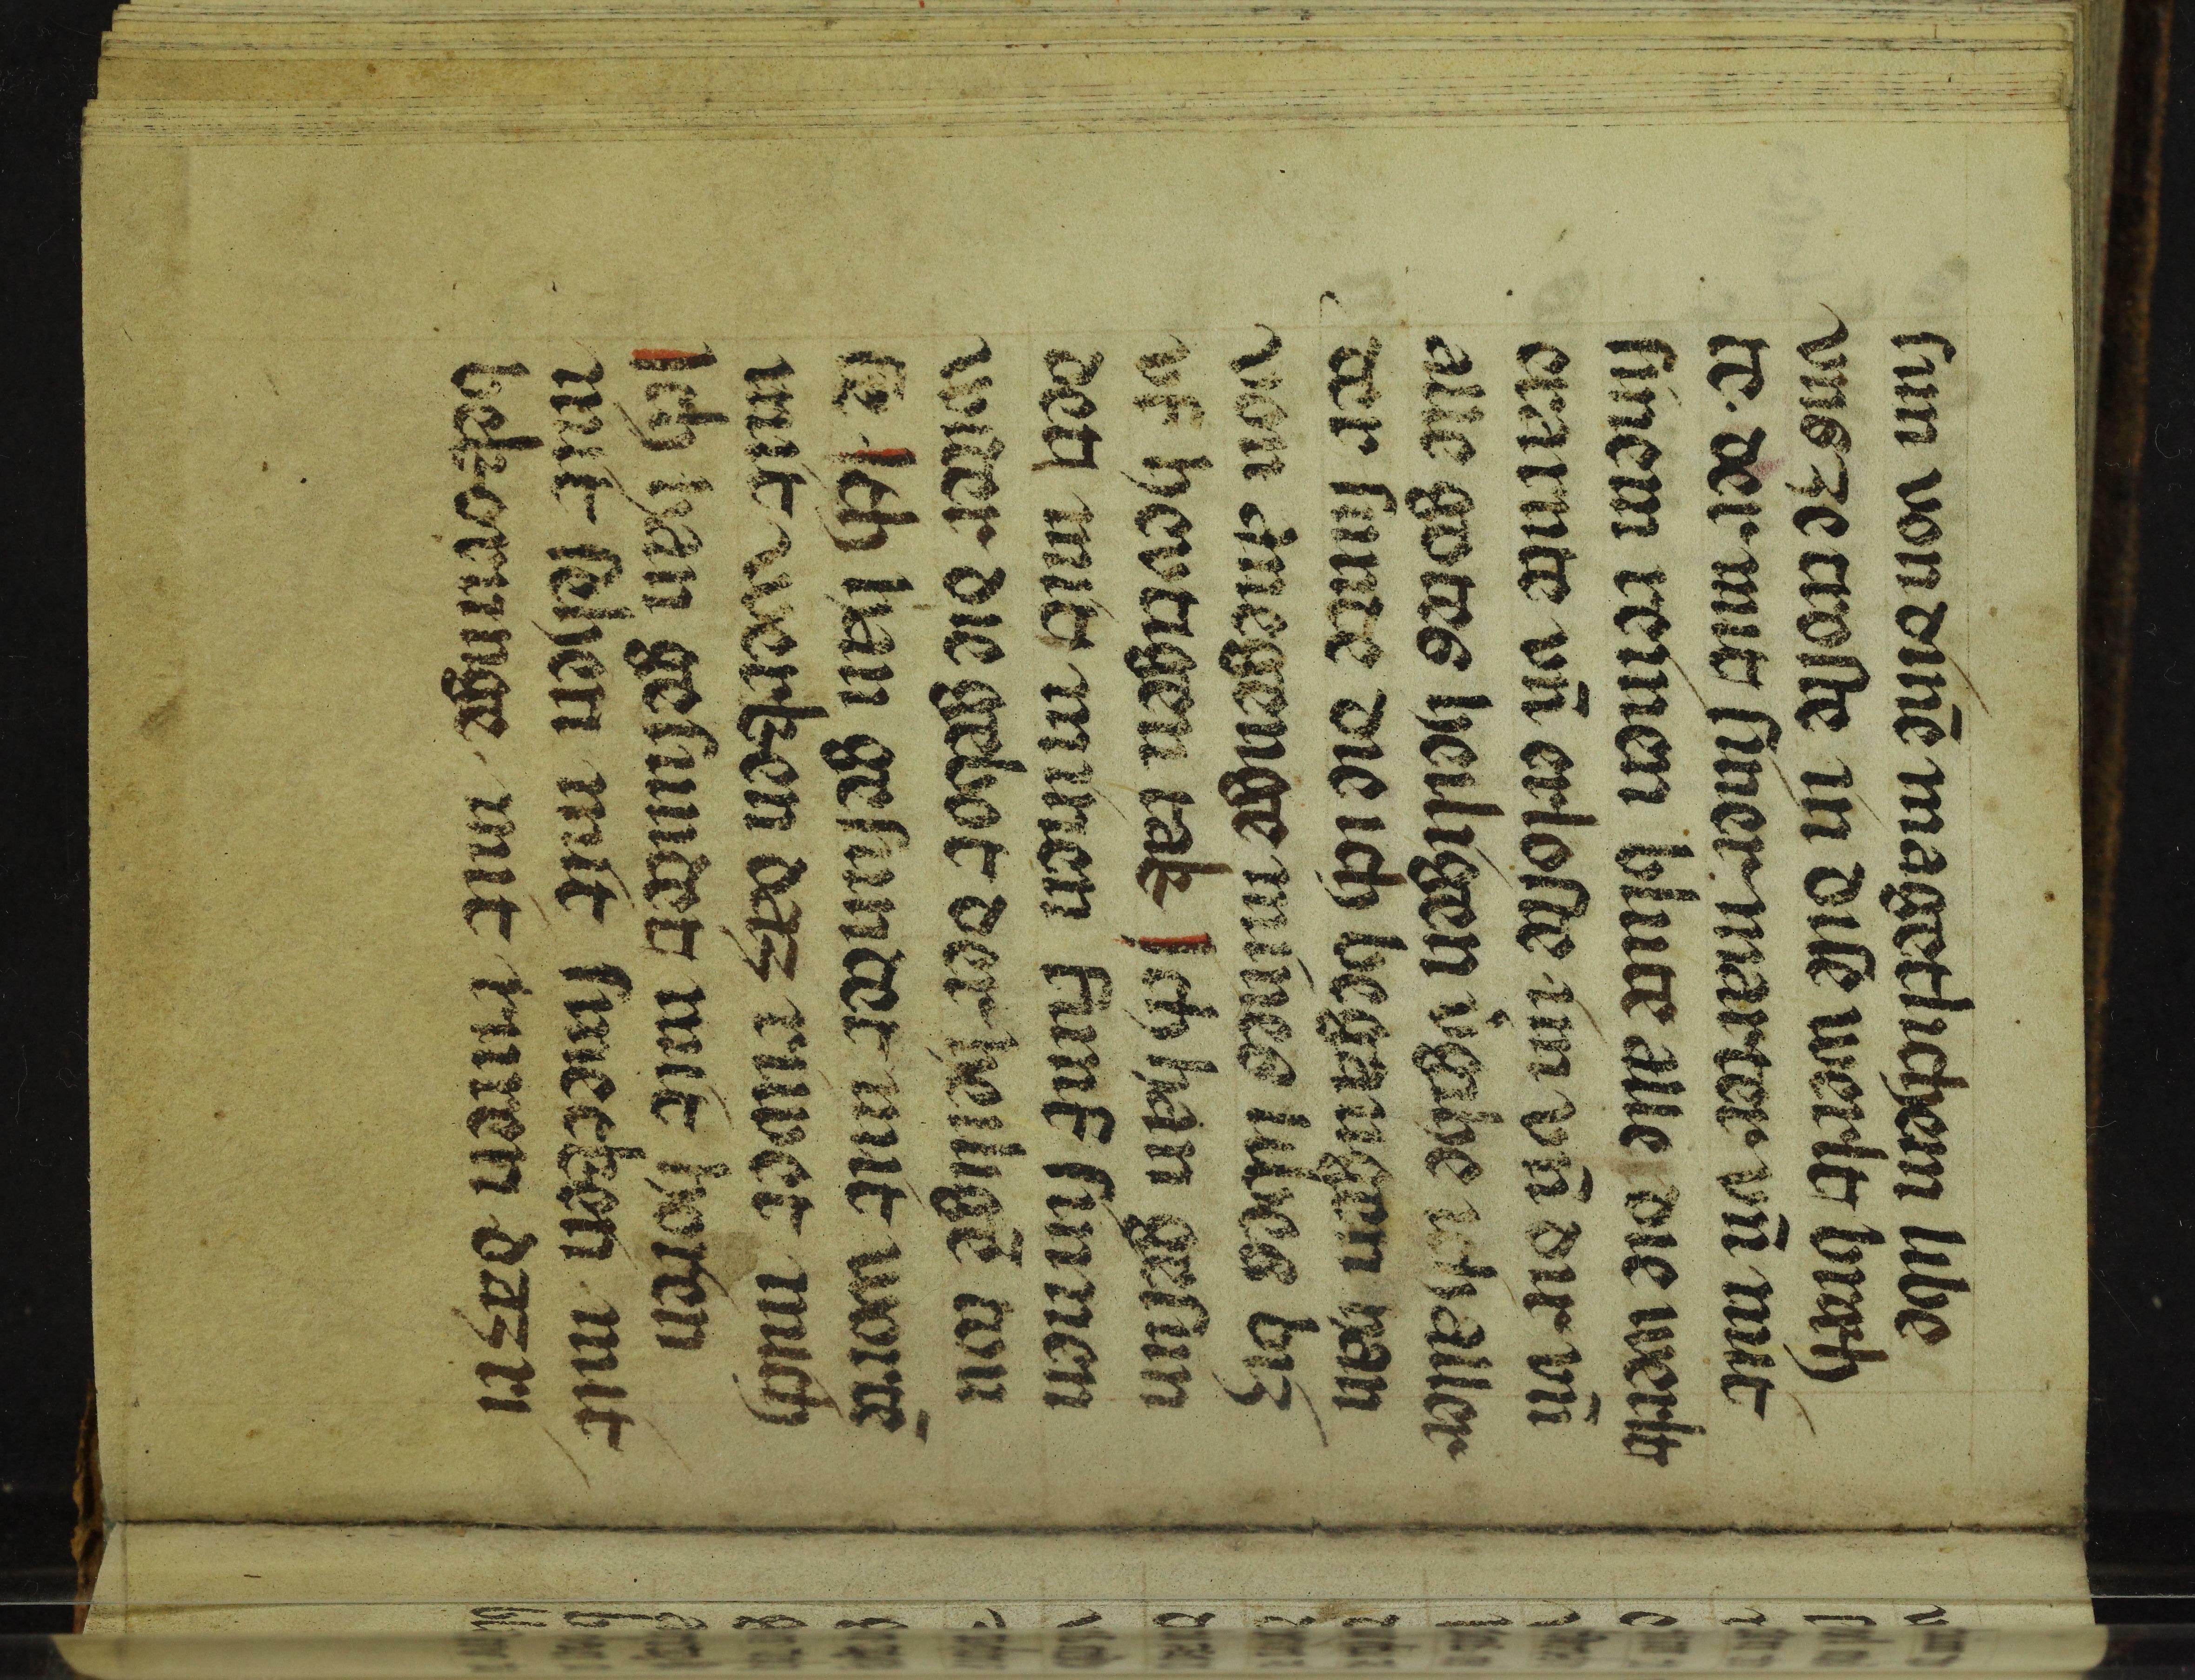 sun von dinē magetlichem libe
vns ze troste in dise werlt brath
te. der mit siner marter vn̄ mit
sinem reinen blute alle die werlt
vn̄ erloste im vn̄ dir vn̄
alle gotes heiligen ich aller
der sunde die ich begangen han
von anegenge mines libes biz
vf hevtigen tak. Ich han gesun
det mit minen fumf sinnen
wider die gebot der heiligē
Ich han gesundet mit worte
mit werchen daz riuet mich
Ich han gesundet mit horen
mit sehen mit smechen mit
bechorunge mit ruren dazu